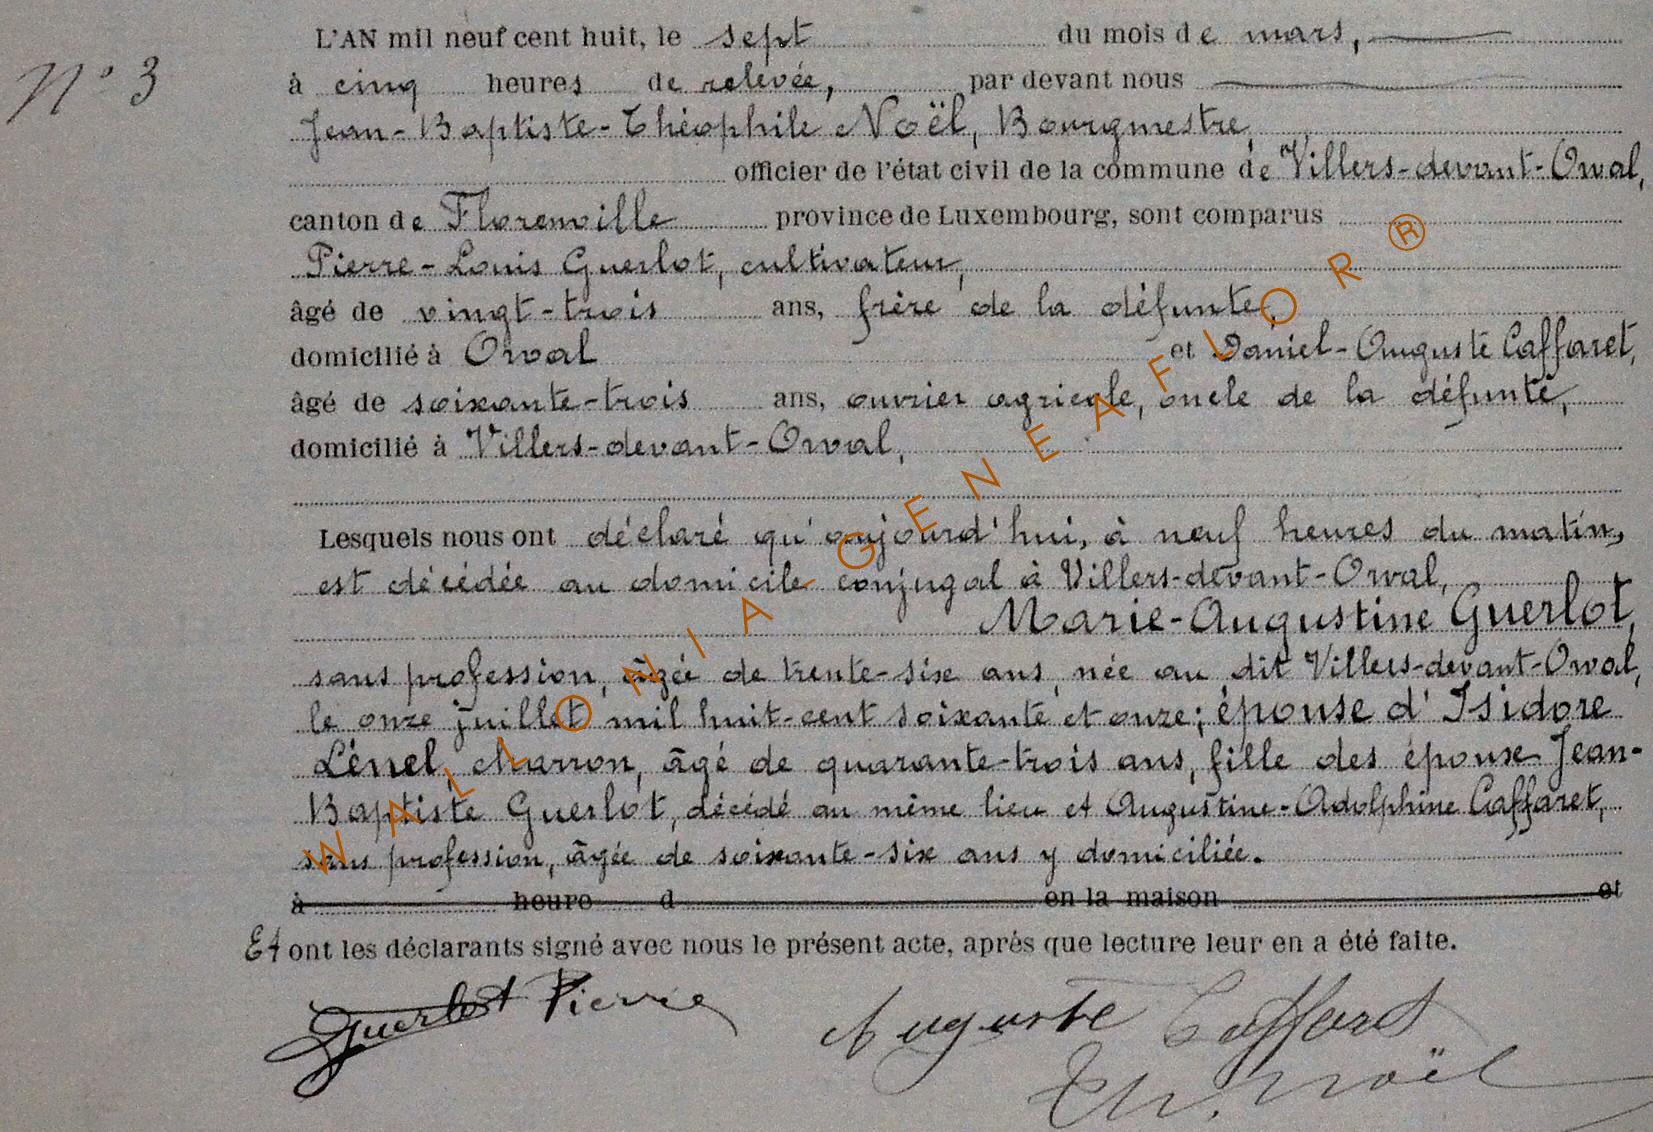 N° 3
L'AN mil neuf cent huit, le sept du mois de mars,
à cinq heures de relevée, par devant nous
Jean-Baptiste-Théophile Noël, Bourgmestre,
officier de l'état civil de la commune de Villers-devant-Orval,
canton de Florenville province de Luxembourg, sont comparus
Pierre-Louis Guerlot, cultivateur,
âgé de vingt-trois ans, frère de la défunte,
domicilié à Orval et Daniel-Auguste Caffaret,
âgé de soixante-trois ans, ouvrier agricole, oncle de la défunte,
domicilié à Villers-devant-Orval,
Lesquels nous ont déclaré qu'aujourd'hui, à neuf heures du matin,
est décédée au domicile conjugal à Villers-devant-Orval,
Marie-Augustine Guerlot,
sans profession, âgée de trente-six ans, née au dit Villers-devant-Orval,
le onze juillet mil huit-cent soixante et onze; épouse d'Isidore
Lénel, charron, âgé de quarante-trois ans, fille des époux Jean-
Baptiste Guerlot, décédé au même lieu et Augustine-Adolphine Caffaret,
sans profession, âgée de soixante-six ans y domiciliée.
à heure d en la maison et
Et ont les déclarants signé avec nous le présent acte, après que lecture leur en a été faite.
Guerlot Pierre
Auguste Caffaret
Th. Noël
WALLONIA GENEAFLOR ®